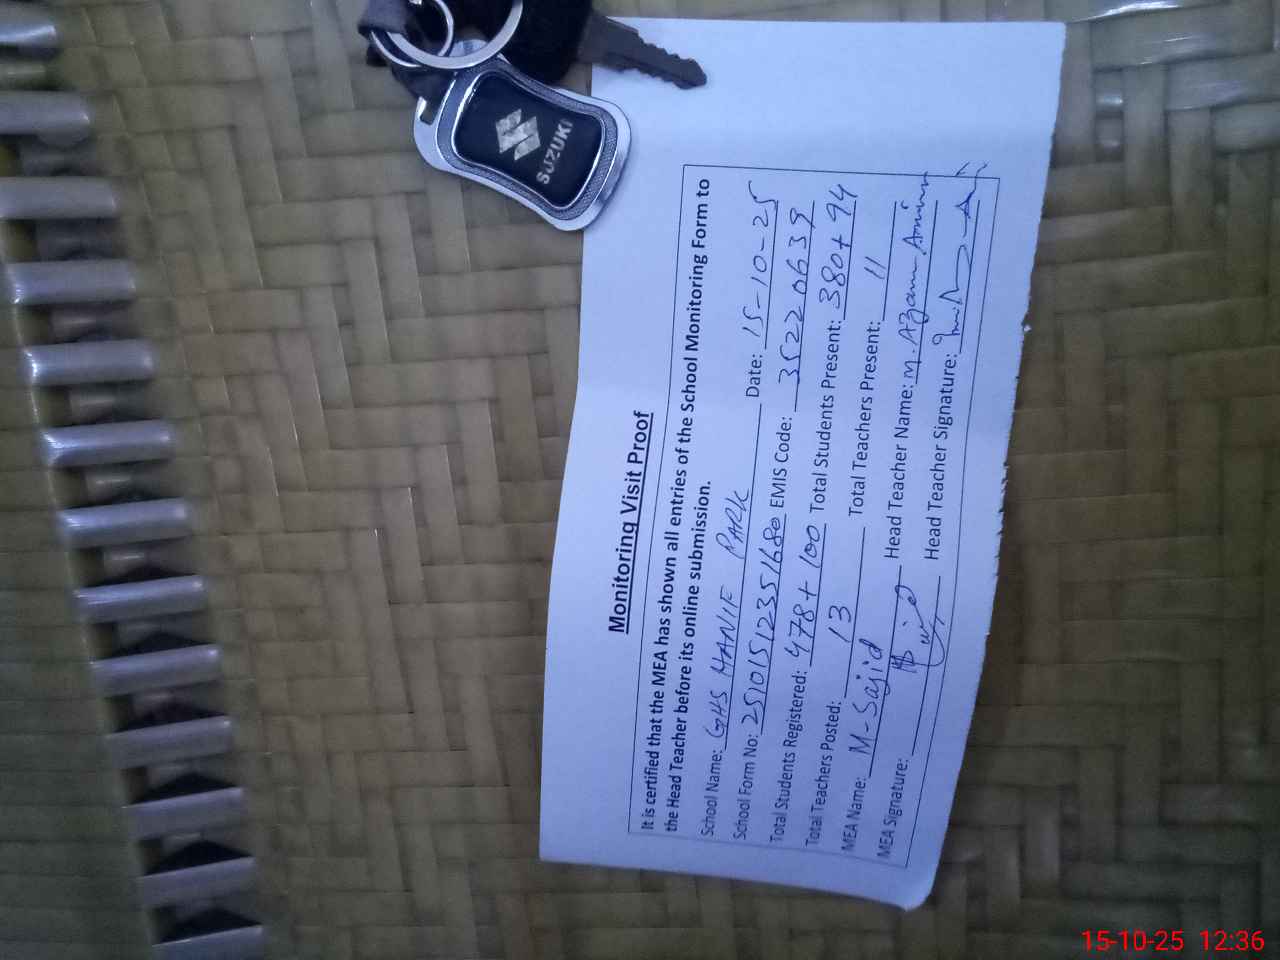 SUZUKI
Monitoring Visit Proof
It is certified that the MEA has shown all entries of the School Monitoring Form to
the Head Teacher before its online submission.
School Name: GHS HANIF PARK Date: 15-10-25
School Form No: 25101512351680 EMIS Code: 35220639
Total Students Registered: 478+100 Total Students Present: 380+94
Total Teachers Posted: 13 Total Teachers Present: 11
MEA Name: M-Sajid Head Teacher Name: M. Azam
MEA Signature: Head Teacher Signature:
15-10-25 12:36